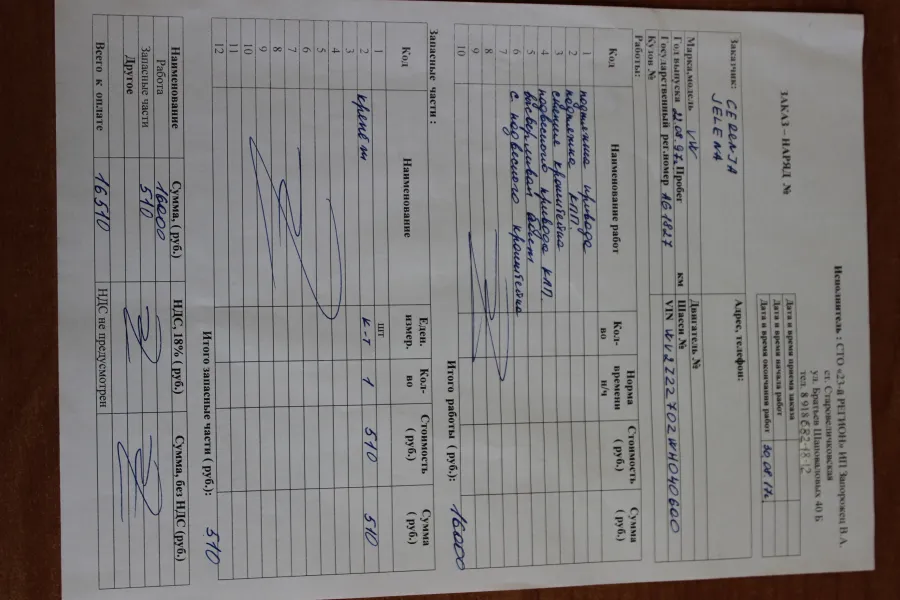 Исполнитель : СТО «23-й РЕГИОН» ИП Запорожец В.А.
ст. Старовеличковская
ул. Братьев Шаповаловых 40 Б
тел. 8 918 682-48-12
ЗАКАЗ – НАРЯД №
Дата и время приема заказа
Дата и время начала работ
Дата и время окончания работ 30.08.17г.
Заказчик: CERENJA
JELENA
Адрес, телефон:
Марка,модель VW
Двигатель №
Год выпуска 22.08.97г. Пробег км
Шасси №
Государственный рег.номер AG1827
VIN WV2ZZZ70ZWH040600
Кузов №
Работы:
Код Наименование работ Кол-во Норма времени н/ч Стоимость ( руб.) Сумма ( руб.)
1 подтяжка привода
2 подтяжка КПП.
3 снятие кронштейна
4 подвесного привода КПП.
5 болт
6 с подвесного кронштейна
7
8
9
10
Итого работы ( руб.): 16000
Запасные части :
Код Наименование Еден. измер. Кол-во Стоимость ( руб.) Сумма ( руб.)
1 шт
2 крепёж к-т 1 510 510
3
4
5
6
7
8
9
10
11
12
Итого запасные части ( руб.): 510
Наименование Сумма, ( руб.) НДС, 18% ( руб.) Сумма, без НДС (руб.)
Работа 16000
Запасные части 510
Другое
Всего к оплате 16510 НДС не предусмотрен